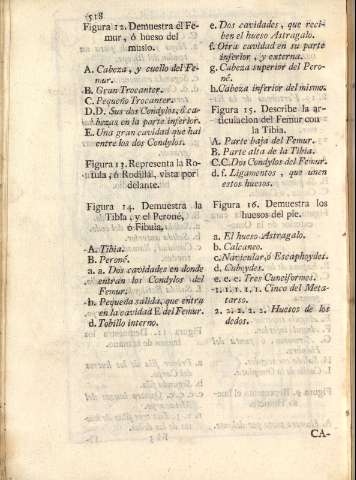 518
Figura 12. Demuestra el Fe-
mur, ò hueso del
muslo.
A. Cabeza, y cuello del Fe-
mur.
B. Gran Trocanter.
C. Pequeño Trocanter.
D.D. Sus dos Condylos, ò ca-
bezas en la parte inferior.
E. Una gran cavidad que hai
entre los dos Condylos.
Figura 13. Representa la Ro-
tula, ò Rodilla, vista por
delante.
Figura 14. Demuestra la
Tibia, y el Peroné,
ò Fibula.
A. Tibia.
B. Peroné.
a. a. Dos cavidades en donde
entran los Condylos del
Femur.
b. Pequeña salida, que entra
en la cavidad E. del Femur.
d. Tobillo interno.
e. Dos cavidades, que reci-
ben el hueso Astragalo.
f. Otra cavidad en su parte
inferior, y externa.
g. Cabeza superior del Pero-
né.
h. Cabeza inferior del mismo.
Figura 15. Describe la ar-
ticulacion del Femur con
la Tibia.
A. Parte baja del Femur.
B. Parte alta de la Tibia.
C.C. Dos Condylos del Femur.
d. f. Ligamentos, que unen
estos huesos.
Figura 16. Demuestra los
huesos del pie.
a. El hueso Astragalo.
b. Calcaneo.
c. Navicular, ò Escaphoydes.
d. Cuboydes.
e. e. e. Tres Cuneiformes.
1. 1. 1. 1. 1. Cinco del Meta-
tarso.
2. 2. 2. 2. 2. Huesos de los
dedos.
CA-